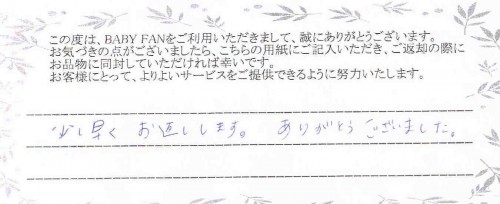 この度は、BABY FANをご利用いただきまして、誠にありがとうございます。
お気づきの点がございましたら、こちらの用紙にご記入いただき、ご返却の際に
お品物に同封していただければ幸いです。
お客様にとって、よりよいサービスをご提供できるように努力いたします。
少し早く お返しします。 ありがとう ございました。